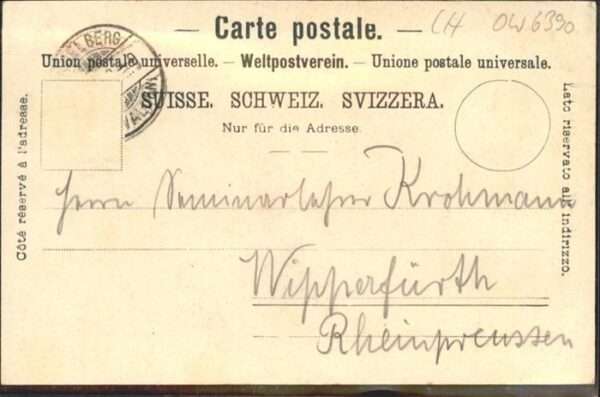 — Carte postale. —
CH OW 6390
Union postale universelle. — Weltpostverein. — Unione postale universale.
SUISSE. SCHWEIZ. SVIZZERA.
Nur für die Adresse.
ELBERG
Côté réservé à l'adresse.
Lato riservato all' indirizzo.
Herrn Seminarlehrer Krohmann
Wipperfürth
Rheinpreussen